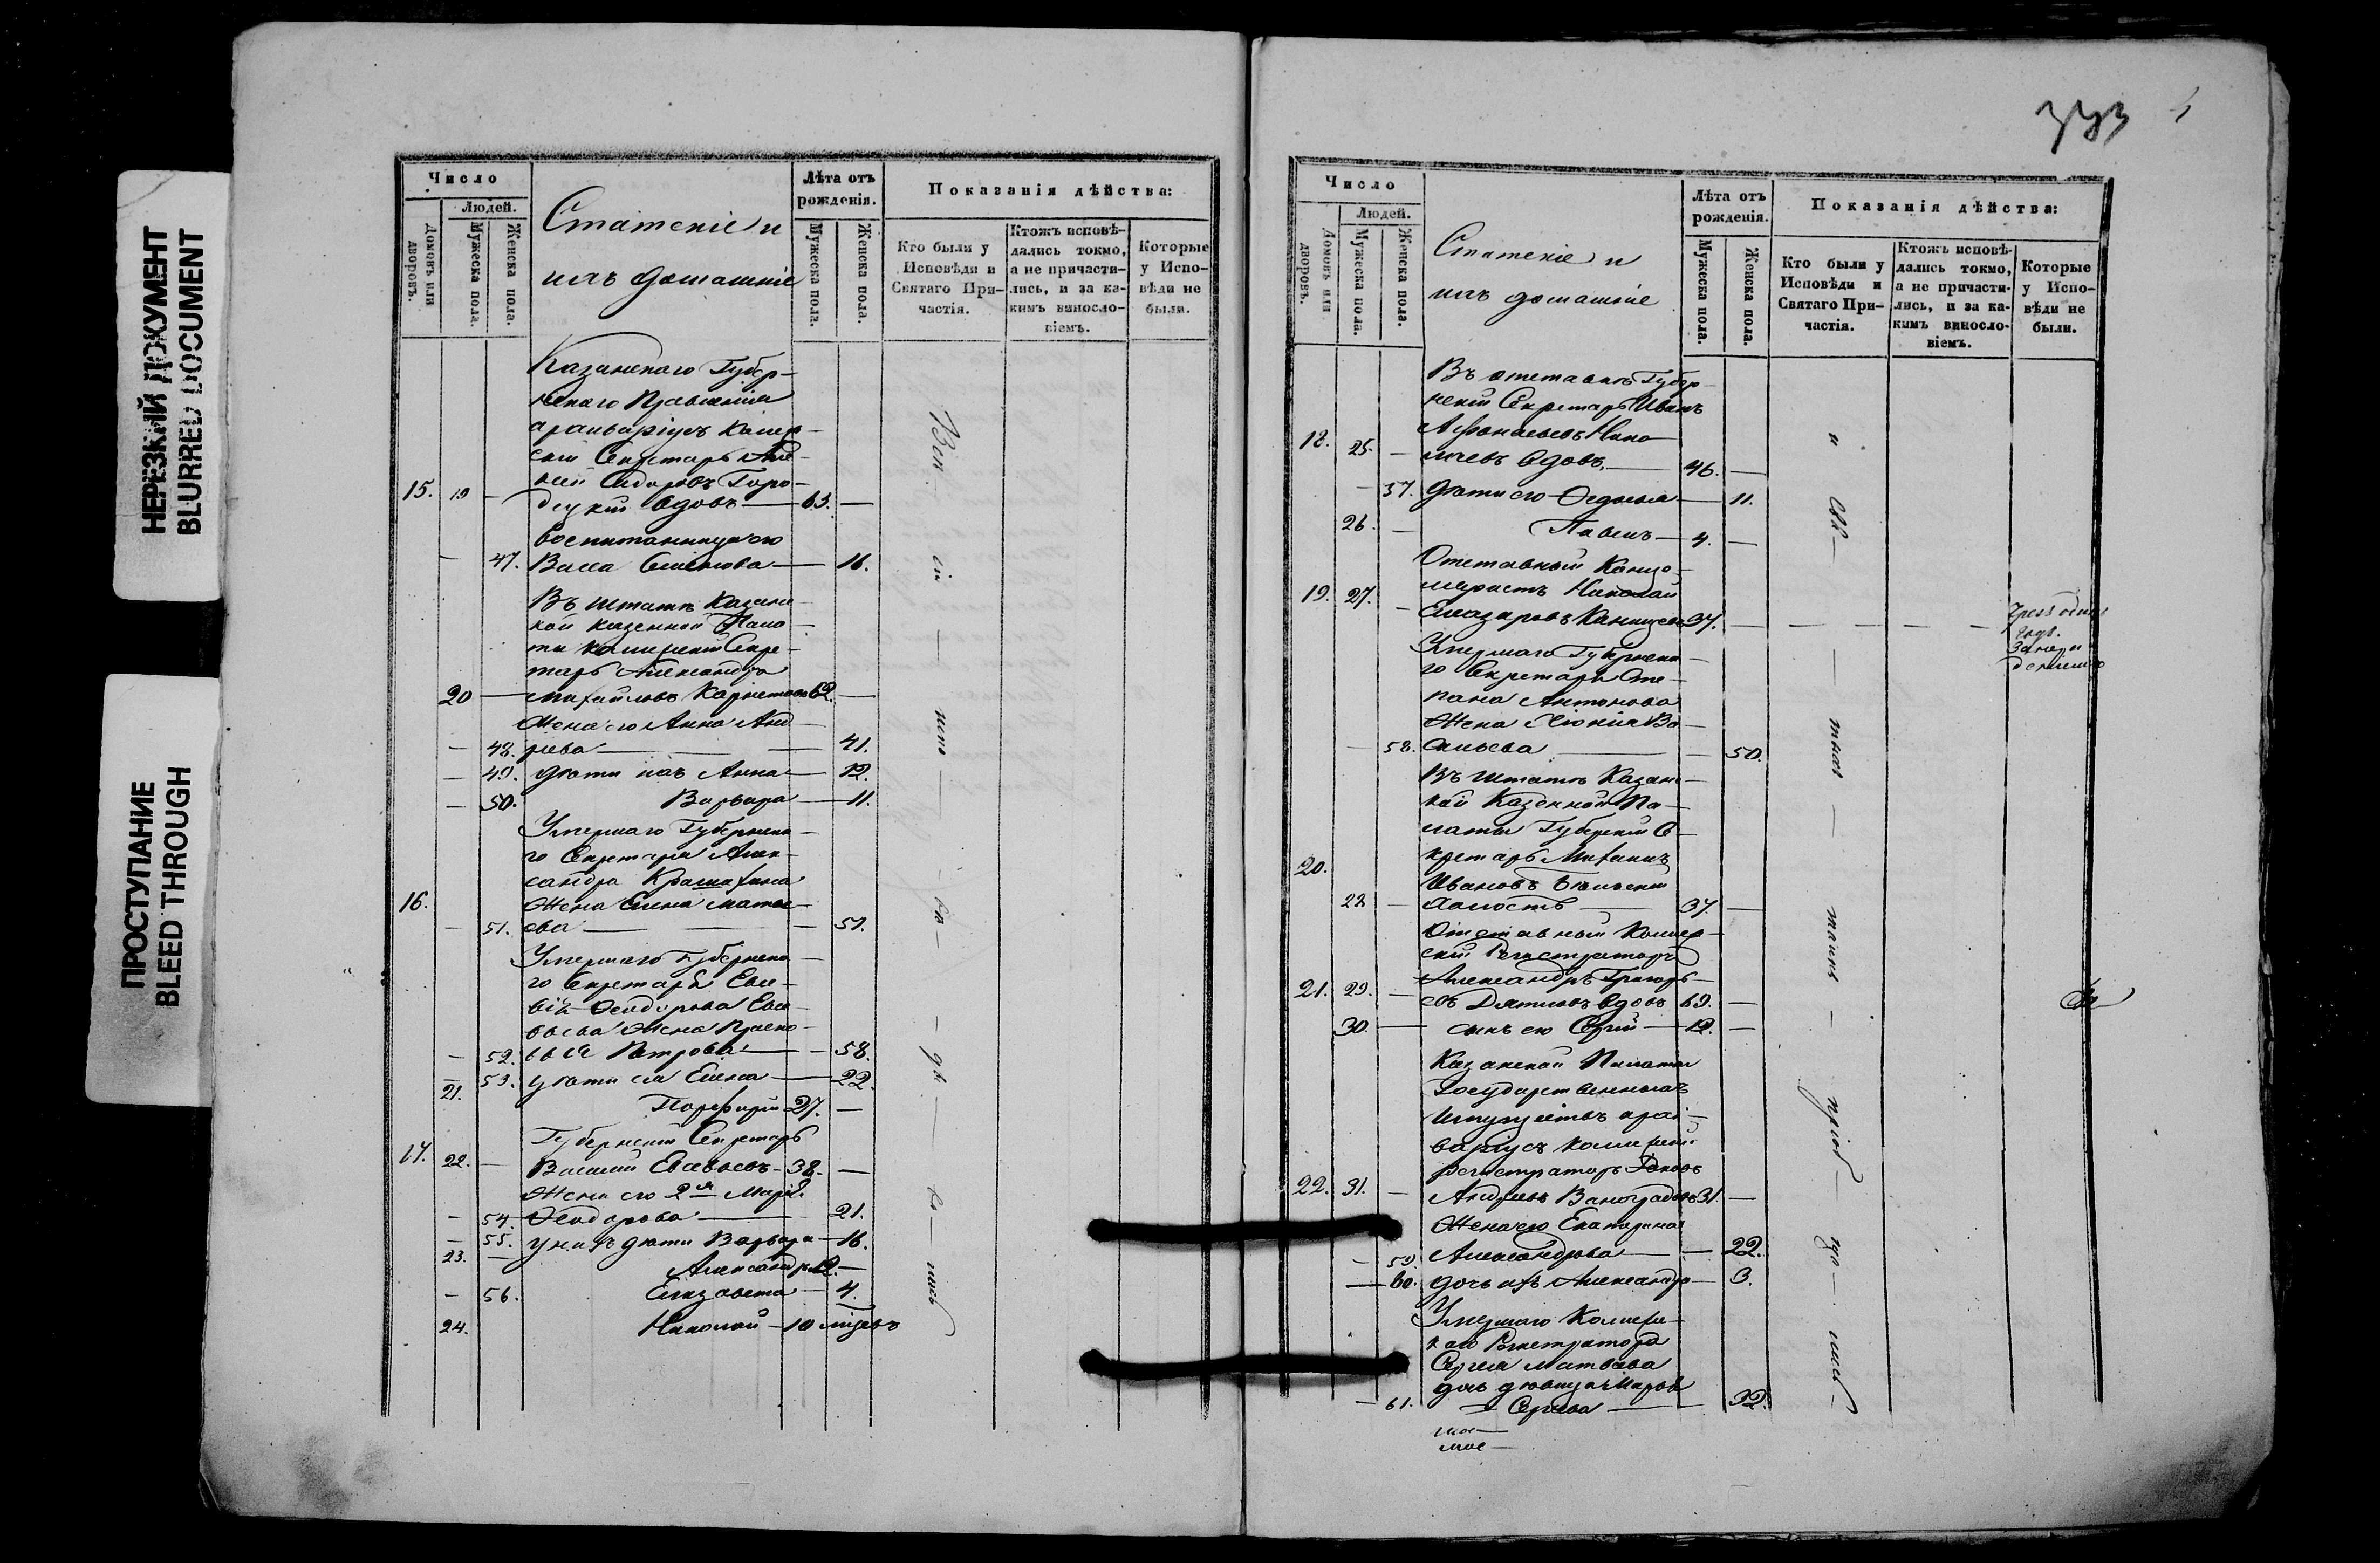 НЕРЕЗКИЙ ДОКУМЕНТ
BLURRED DOCUMENT
ПРОСТУПАНИЕ
BLEED THROUGH
Число
Людей.
Домовъ или дворовъ.
Мужеска пола.
Женска пола.
Статскіе и
ихъ домашніе
Лѣта отъ рожденія.
Мужеска пола.
Женска пола.
Показанія дѣйства:
Кто были у Исповѣди и Святаго Причастія.
Ктожъ исповѣдались токмо, а не причастились, и за какимъ винословіемъ.
Которые у Исповѣди не были.
Казанскаго Губер-
нскаго Правленія
архиваріусъ Коллеж-
скій Секретарь Але-
ксѣй Сидоровъ Горо-
15. 19 — децкій вдовъ — 63. —
воспитанница его
— 47. Васса Семенова — 16.
Въ штатѣ Казанс-
кой Казенной Пала-
ты Коллежскій Секре-
тарь Александръ
20 — Михайловъ 62. —
Жена его Анна Анд-
— 48. реева — 41.
— 49. дѣти ихъ Анна — 12.
— 50. Варвара — 11.
Умершаго Губернска-
го Секретаря Алек-
сандра
16. Жена Елена Матве-
— 51. ева — 57.
Умершаго Губернска-
го Секретаря Евсе-
вія Ѳеодорова Евсе-
вьева Жена Праско-
— 52. вья Петрова — 58.
— 53. дѣти ея Елена — 22.
21. Порфирій 27. —
Губернскій Секретарь
17. 22. — Василій Евсевьевъ — 38. —
Жена его 2я Марья
— 54. Ѳеодорова — 21.
— 55. у нихъ дѣти Варвара — 16.
23. — Александръ 12. —
— 56. Елизавета — 4.
24. Николай — 10 мѣсяцевъ
373
Число
Людей.
Домовъ или дворовъ.
Мужеска пола.
Женска пола.
Статскіе и
ихъ домашніе
Лѣта отъ рожденія.
Мужеска пола.
Женска пола.
Показанія дѣйства:
Кто были у Исповѣди и Святаго Причастія.
Ктожъ исповѣдались токмо, а не причастились, и за какимъ винословіемъ.
Которые у Исповѣди не были.
Въ отставкѣ Губер-
нскій Секретарь Иванъ
18. 25. —
вдовъ — 46. —
— 57. дѣти его — 11.
26. — Павелъ — 4. —
Отставный Канце-
19. 27. ляристъ Николай
— Елазаровъ 37. —
Умершаго Губернска-
го Секретаря Сте-
пана Антонова
Жена Ва-
— 58. сильева — 50.
Въ штатѣ Казанс-
кой Казенной Па-
латы Губернскій Се-
20. кретарь Михаилъ
Ивановъ Бѣльскій
28 — холостъ — 37. —
Отставный Коллеж-
скій Регистраторъ
Александръ Григорь-
21. 29. — евъ вдовъ 69. —
30. — сынъ его Сергій — 12. —
Казанской Палаты
Государственныхъ
Имуществъ архи-
варіусъ Коллежскій
Регистраторъ
22. 31. — Андреевъ Виноградовъ 31. —
Жена его Екатерина
— 59. Александрова — 22.
— 60. дочь ихъ Александра — 3.
Умершаго Коллежс-
каго Регистратора
Сергея Матвѣева
дочь дѣвица Марья
— 61. Сергѣева — 32.